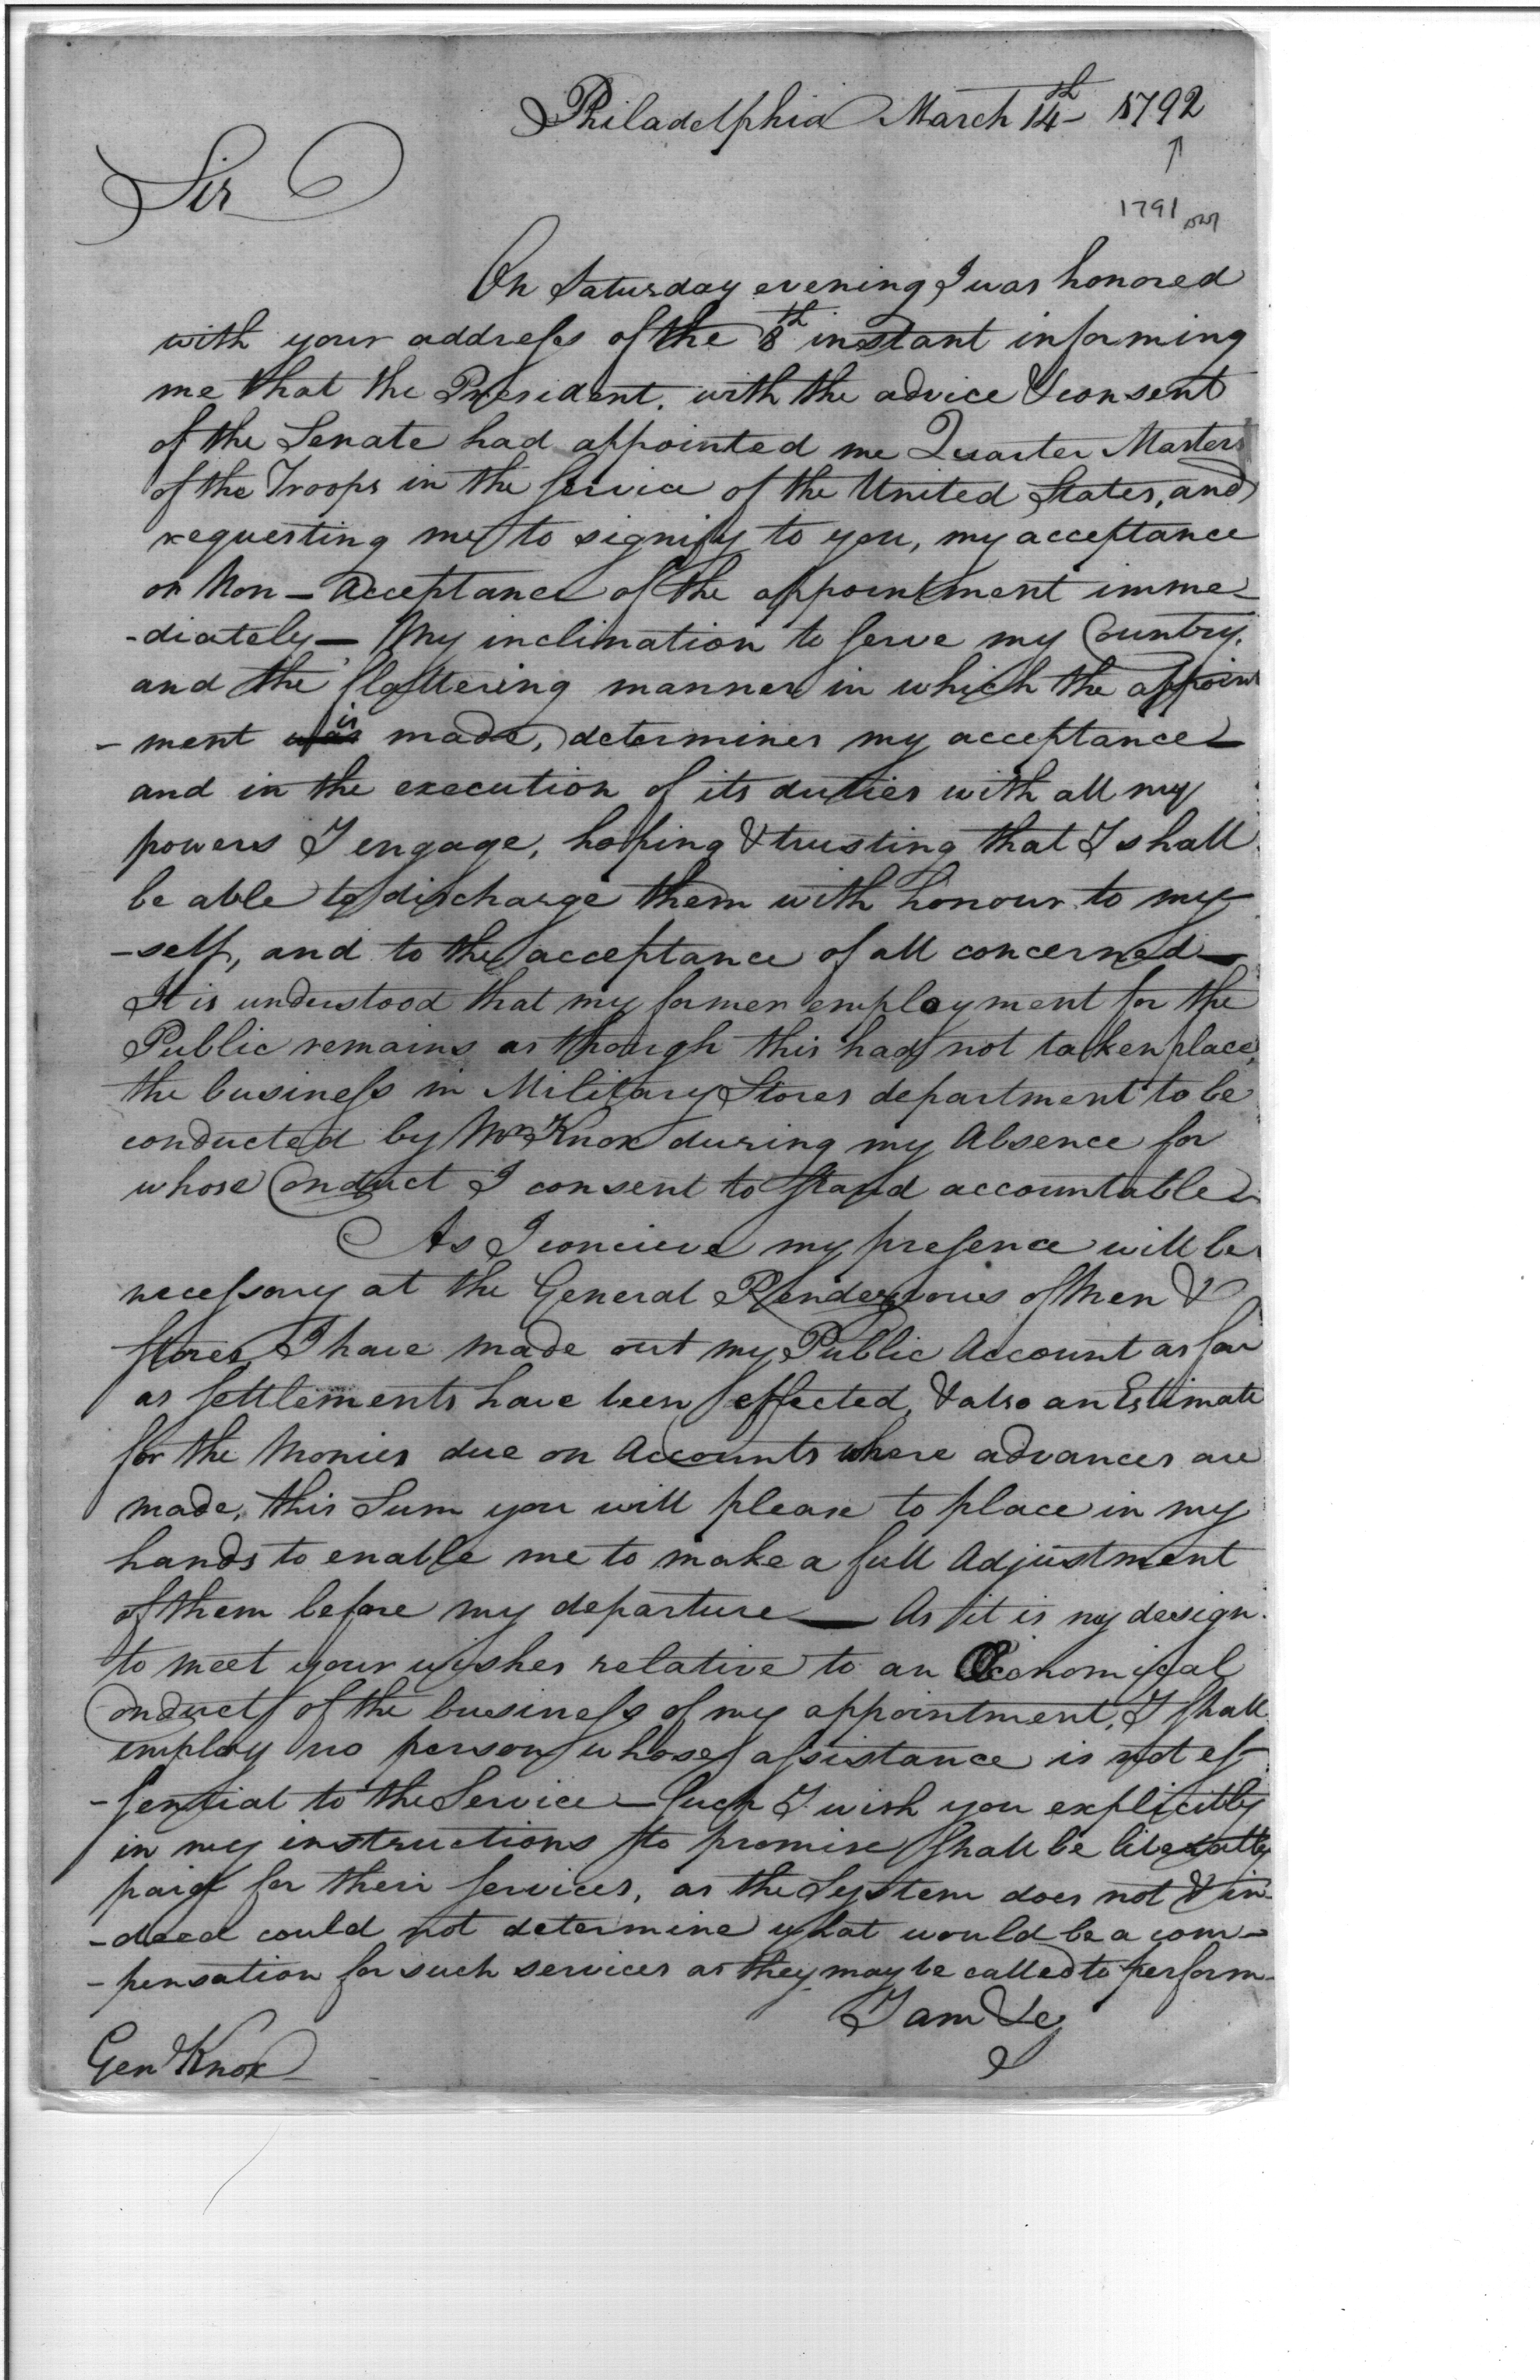 Philadelphia March 14th 1792
↑
1791
Sir
On Saturday evening I was honored
with your address of the 8th instant informing
me that the President. with the advice & consent
of the Senate had appointed me Quarter Master
of the Troops in the service of the United States, and
requesting me to signify to you, my acceptance
or Non-Acceptance of the appointment imme-
-diately— My inclination to serve my Country,
and the flattering manner in which the appoint
-ment was is made, determines my acceptance—
and in the execution of its duties with all my
powers I engage, hoping & trusting that I shall
be able to discharge them with honour to my
-self, and to the acceptance of all concerned—
It is understood that my former employment for the
Public remains as though this had not taken place,
the business in Military Stores department to be
conducted by Mr Knox during my Absence for
whose Conduct I consent to stand accountable—
As I concieve my presence will be
necessary at the General Rendezvous of Men &
stores I have made out my Public Account as far
as settlements have been effected, & also an Estimate
for the Monies due on Accounts where advances are
made, this Sum you will please to place in my
hands to enable me to make a full Adjustment
of them before my departure— As it is my design
to meet your wishes relative to an Oeconomical
Conduct of the business of my appointment, I shall
employ no person whose assistance is not es-
-sential to the Service— Such I wish you explicitly
in my instructions to promise shall be liberally
paid for their services, as the System does not & in-
-deed could not determine what would be a com-
-pensation for such services as they may be called to perform—
I am &c
Genl Knox